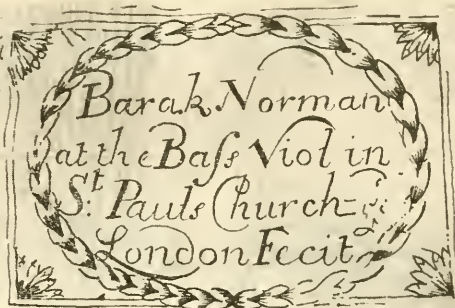 Barak Norman
at the Baſs Viol in
St: Pauls Church=
London Fecit